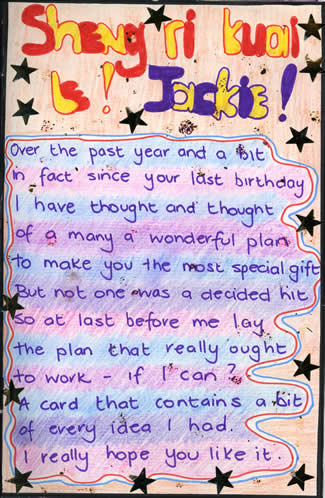 Sheng ri kuai
le! Jackie!
Over the past year and a bit
in fact since your last birthday
I have thought and thought
of a many a wonderful plan
to make you the most special gift
But not one was a decided hit
so at last before me lay
the plan that really ought
to work - if I can?
A card that contains a bit
of every idea I had.
I really hope you like it.